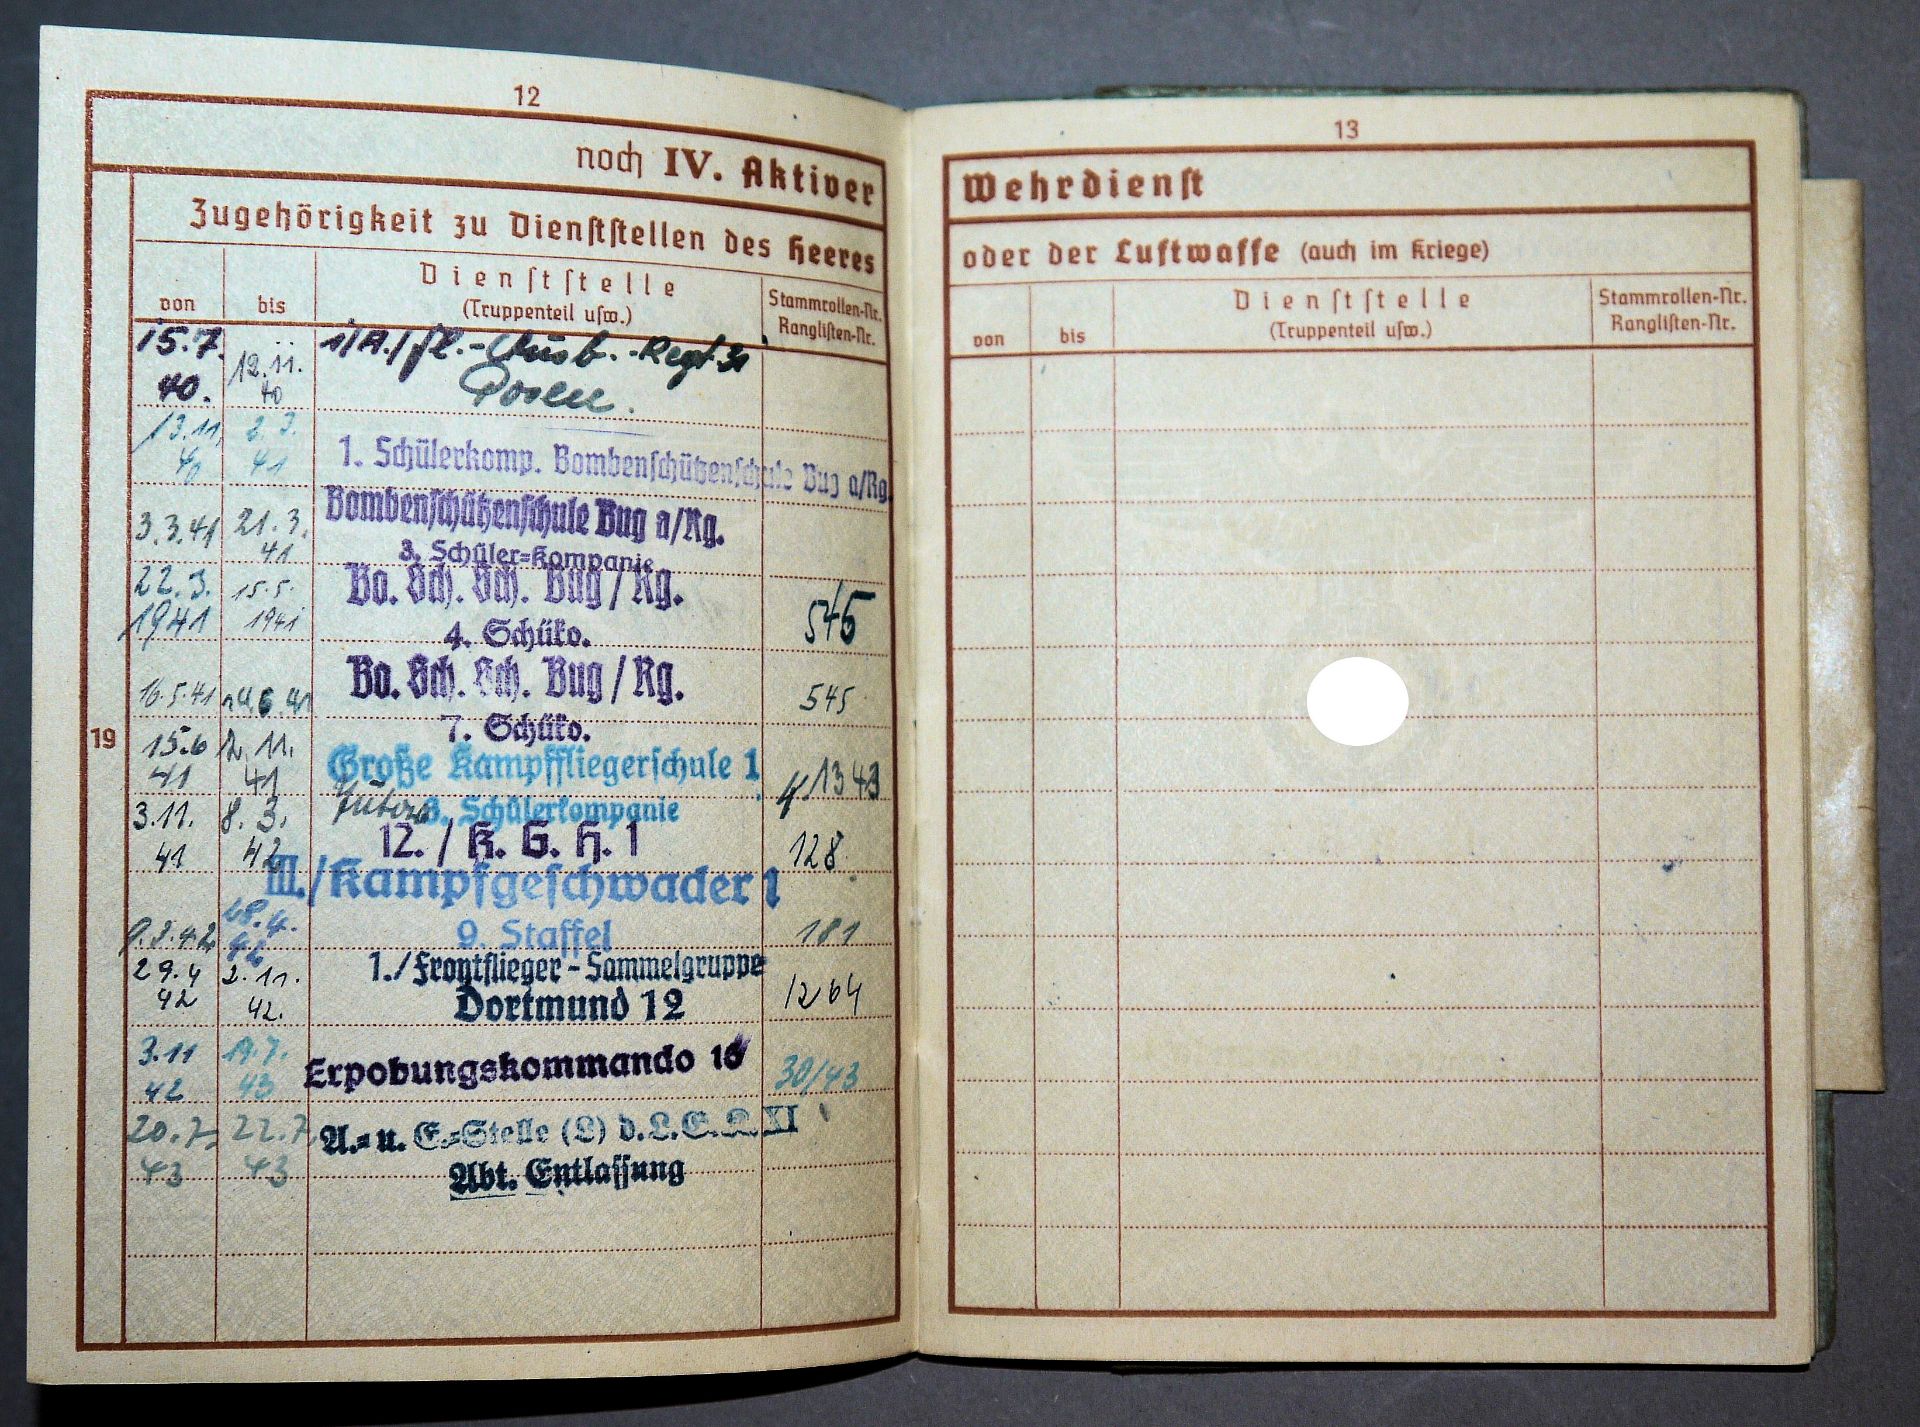 12
noch IV. Aktiver
Zugehörigkeit zu Dienststellen des Heeres
von bis Dienststelle (Truppenteil usw.) Stammrollen-Nr. Ranglisten-Nr.
15.7. 40. 12.11. 40 1/A./Fl.-Ausb.-Regt. 31
Posen.
13.11. 40 2.3. 41 1. Schülerkomp. Bombenschützenschule Bug a/Rg.
3.3.41 21.3. 41 Bombenschützenschule Bug a/Rg.
3. Schüler=Kompanie
22.3. 1941 15.5. 1941 Bo. Sch. Sch. Bug/Rg. 545
4. Schüko.
16.5.41 14.6.41 Bo. Sch. Sch. Bug/Rg. 545
7. Schüko.
19
15.6 41 2.11. 41 Große Kampffliegerschule 1 1343
3. Schülerkompanie
3.11. 41 8.3. 42 12./K.G.H.1 128
III./Kampfgeschwader 1
9.3.42 28.4. 42 9. Staffel 181
29.4 42 2.11. 42. 1./Frontflieger-Sammelgruppe
Dortmund 12 1264
3.11 42 19.7. 43 Erpobungskommando 16 30/43
20.7. 43 22.7. 43 A.= u. E.=Stelle (L) d. L. G. K. XI
Abt. Entlassung
13
Wehrdienst
oder der Luftwaffe (auch im Kriege)
von bis Dienststelle (Truppenteil usw.) Stammrollen-Nr. Ranglisten-Nr.